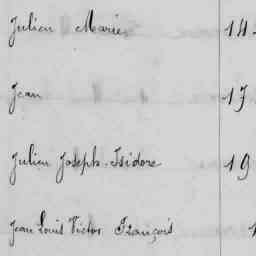 Julien Marie 14
Jean 17
Julien Joseph Isidore 19
Jean Louis Victor François 1